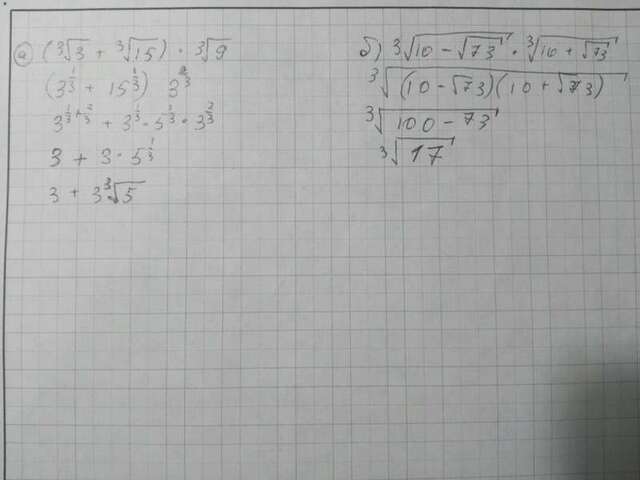 а) (∛3 + ∛15) · ∛9
(3^{1/3} + 15^{1/3}) 3^{2/3}
3^{1/3+2/3} + 3^{1/3} · 5^{1/3} · 3^{2/3}
3 + 3 · 5^{1/3}
3 + 3∛5
б) ∛(10 − √73) · ∛(10 + √73)
∛((10 − √73)(10 + √73))
∛(100 − 73)
∛17